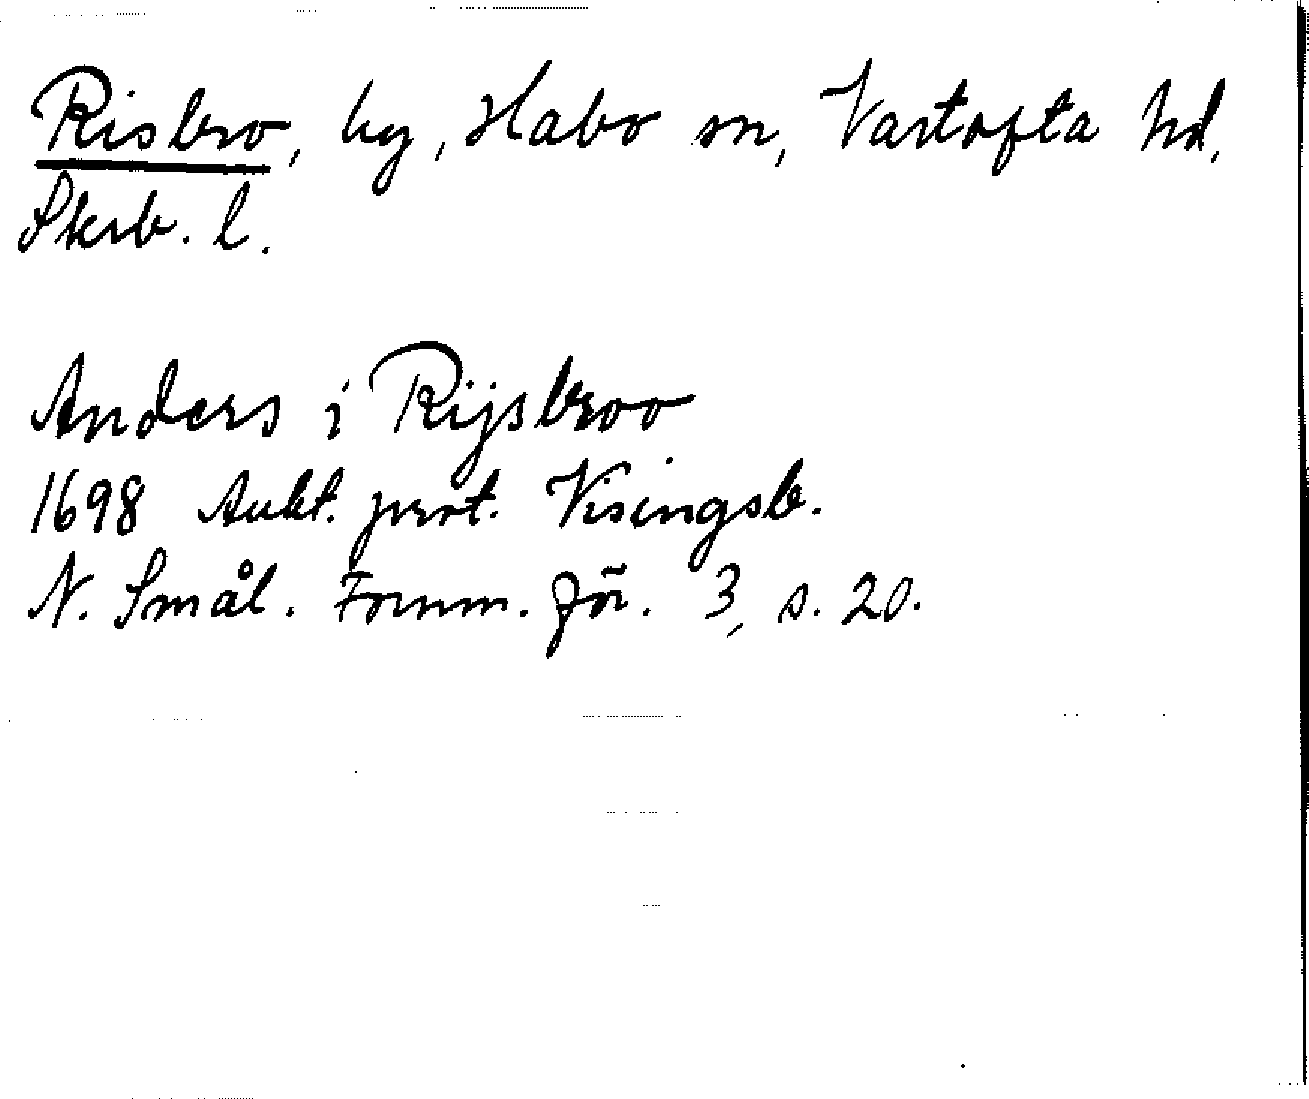 Risbro, by, Habo sn, Vartofta hd,
Skrb. l.
Anders i Rijsbroo
1698 Aukt. prot. Visingsb.
N. Smål. Fornm. för. 3, s. 20.